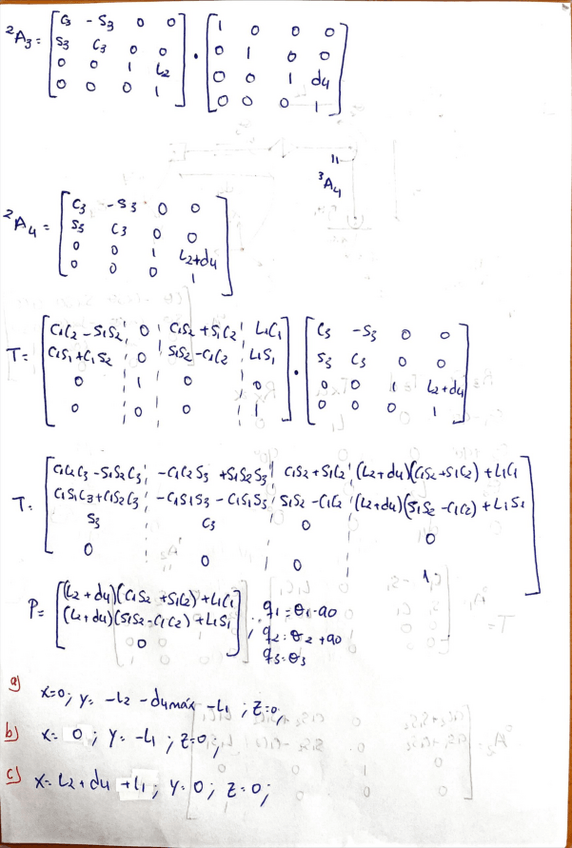 ²A₃ = [C3 -S3 0 0] · [1 0 0 0]
[S3 C3 0 0] [0 1 0 0]
[0 0 1 L2] [0 0 1 d4]
[0 0 0 1] [0 0 0 1]
11
³A₄
²A₄ = [C3 -S3 0 0]
[S3 C3 0 0]
[0 0 1 L2+d4]
[0 0 0 1]
T= [C1C2 - S1S2 0 C1S2 + S1C2 L1C1] · [C3 -S3 0 0]
[C2S1 + C1S2 0 S1S2 - C1C2 L1S1] [S3 C3 0 0]
[0 1 0 0] [0 0 1 L2+d4]
[0 0 0 1] [0 0 0 1]
T= [C1C2C3 - S1S2C3 -C1C2S3 + S1S2S3 C1S2 + S1C2 (L2+d4)(C1S2+S1C2) + L1C1]
[C1S1C3 + C1S2C3 -C1S1S3 - C1S1S3 S1S2 - C1C2 (L2+d4)(S1S2 - C1C2) + L1S1]
[S3 C3 0 0]
[0 0 0 1]
P= [(L2+d4)(C1S2 + S1C2) + L1C1] ; q1 = θ1-90
[(L2+d4)(S1S2 - C1C2) + L1S1] q2 = θ2 + 90
[0] q3 = θ3
a) x=0; y= -L2 -d4máx -L1 ; z=0;
b) x= 0 ; y= -L1 ; z=0;
c) x= L2 + d4 + L1 ; y= 0 ; z= 0;